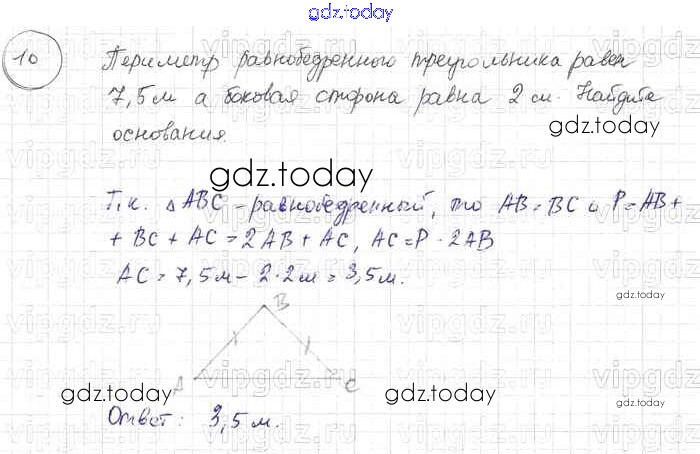 gdz.today
10
Периметр равнобедренного треугольника равен
7,5 м а боковая сторона равна 2 м. Найдите
gdz.today
основания.
gdz.today
Т.к. △ABC - равнобедренный, то AB = BC и P = AB +
+ BC + AC = 2AB + AC, AC = P · 2AB
AC = 7,5 м - 2·2 м = 3,5 м.
gdz.today
B
A
C
gdz.today
gdz.today
gdz.today
Ответ: 3,5 м.
gdz.today